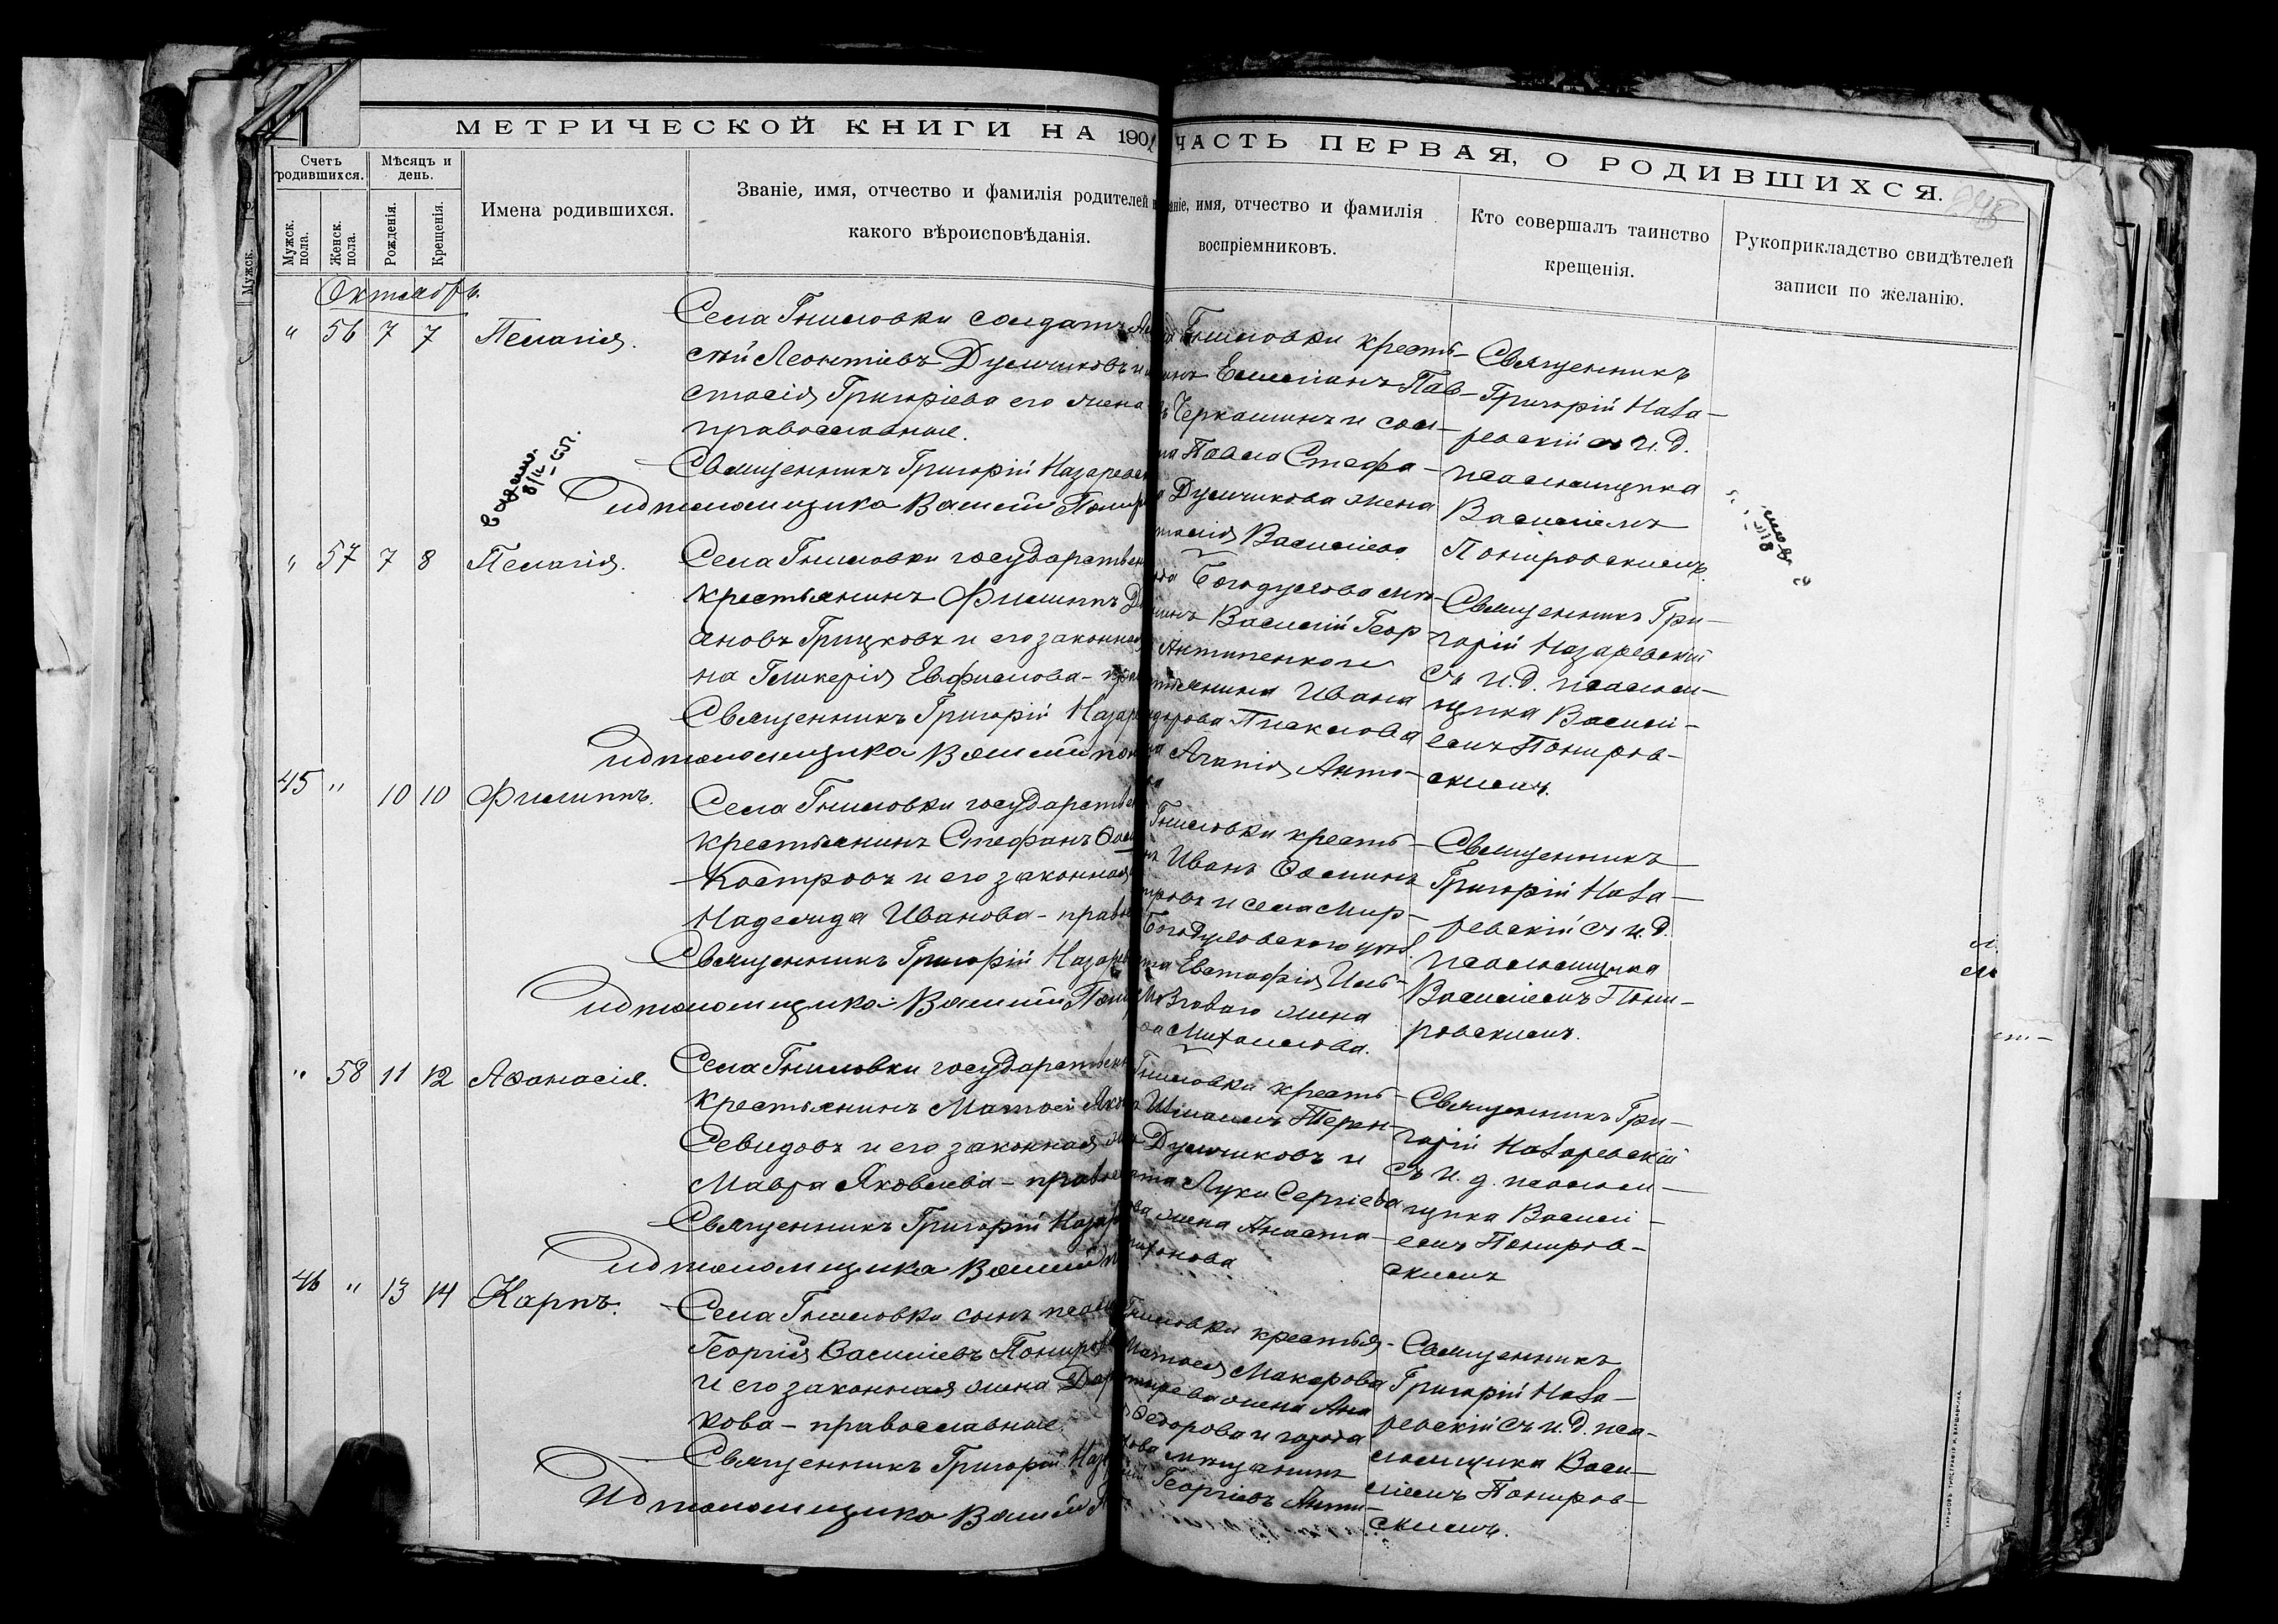 МЕТРИЧЕСКОЙ КНИГИ НА 190
ЧАСТЬ ПЕРВАЯ, О РОДИВШИХСЯ.
Счетъ родившихся.
Мужск. пола.
Женск. пола.
Мѣсяцъ и день.
Рожденія.
Крещенія.
Имена родившихся.
Званіе, имя, отчество и фамилія родителей и
какого вѣроисповѣданія.
аніе, имя, отчество и фамилія
воспріемниковъ.
Кто совершалъ таинство
крещенія.
Рукоприкладство свидѣтелей
записи по желанію.
Мужск.
Октябрь.
" 56 7 7 Пелагія.
Села Гниловки солдатъ
Леонтіевъ Думчиковъ и
стасія Григоріева его жена
православные.
Священникъ Григорій Назаревск
И д псаломщика Василій Понир
Гниловки кресть-
Емеліанъ Пав-
Черкашинъ и сол-
Павла Стефа-
Думчикова жена
Василіева
Священникъ
Григорій Наза-
ревскій съ и. д.
псаломщика
Василіемъ
Понировскимъ.
" 57 7 8 Пелагія.
Села Гниловки государствен
крестьянинъ Филиппъ Д
ановъ Грицковъ и его законная
на Гликерія Евфимова - пра
Священникъ Григорій Назаре
И д псаломщика Василій Пони
Богодухова мѣ-
Василій Геор-
Антипенко и
Ивана
Агапія Анто-
Священникъ Гри-
горій Назаревскій
съ и. д. псалом-
щика Василі-
емъ Пониров-
скимъ.
45 " 10 10 Филиппъ.
Села Гниловки государствен
крестьянинъ Стефанъ
Костровъ и его законная
Надежда Иванова - правос
Священникъ Григорій Назарев
И д псаломщика Василій Пони
Гниловки кресть-
Иванъ Ѳоминъ
и села Мир-
Богодуховскаго уѣзд.
Евстафія Иль-
жена
Михаилова.
Священникъ
Григорій Наза-
ревскій съ и. д.
псаломщика
Василіемъ Пони-
ровскимъ.
" 58 11 12 Аѳанасія.
Села Гниловки государствен
крестьянинъ Матѳей Яков
Севидовъ и его законная же
Мавра Яковлева - правос
Священникъ Григорій Назар
И д псаломщика Василій
Гниловки кресть-
Терен-
Думчиковъ и
Луки Сергіева
жена Анаста-
Священникъ Гри-
горій Назаревскій
съ и. д. псалом-
щика Василі-
емъ Пониров-
скимъ
46 " 13 14 Карпъ.
Села Гниловки сынъ псал
Георгія Василіевъ Пониров
и его законная жена Дар
кова - православные.
Священникъ Григорій Наз
И д псаломщика Василій
Гниловки крестья-
Матѳея Макарова
жена Ана
Ѳедорова и города
мѣщанинъ
Георгіевъ Анти-
Священникъ
Григорій Наза-
ревскій съ и. д. пса-
ломщика Васи-
ліемъ Пониров-
скимъ.